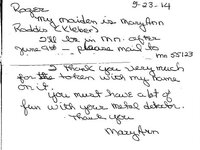 Roger 9-23-14
My maiden is MaryAnn
Raddo (Kleber)
I'll be in Mn. after
June 1st - please mail to
mn 55123
I thank you very much
for the token with my name
on it.
You must have a lot of
fun with your metal detector.
Thank you
MaryAnn